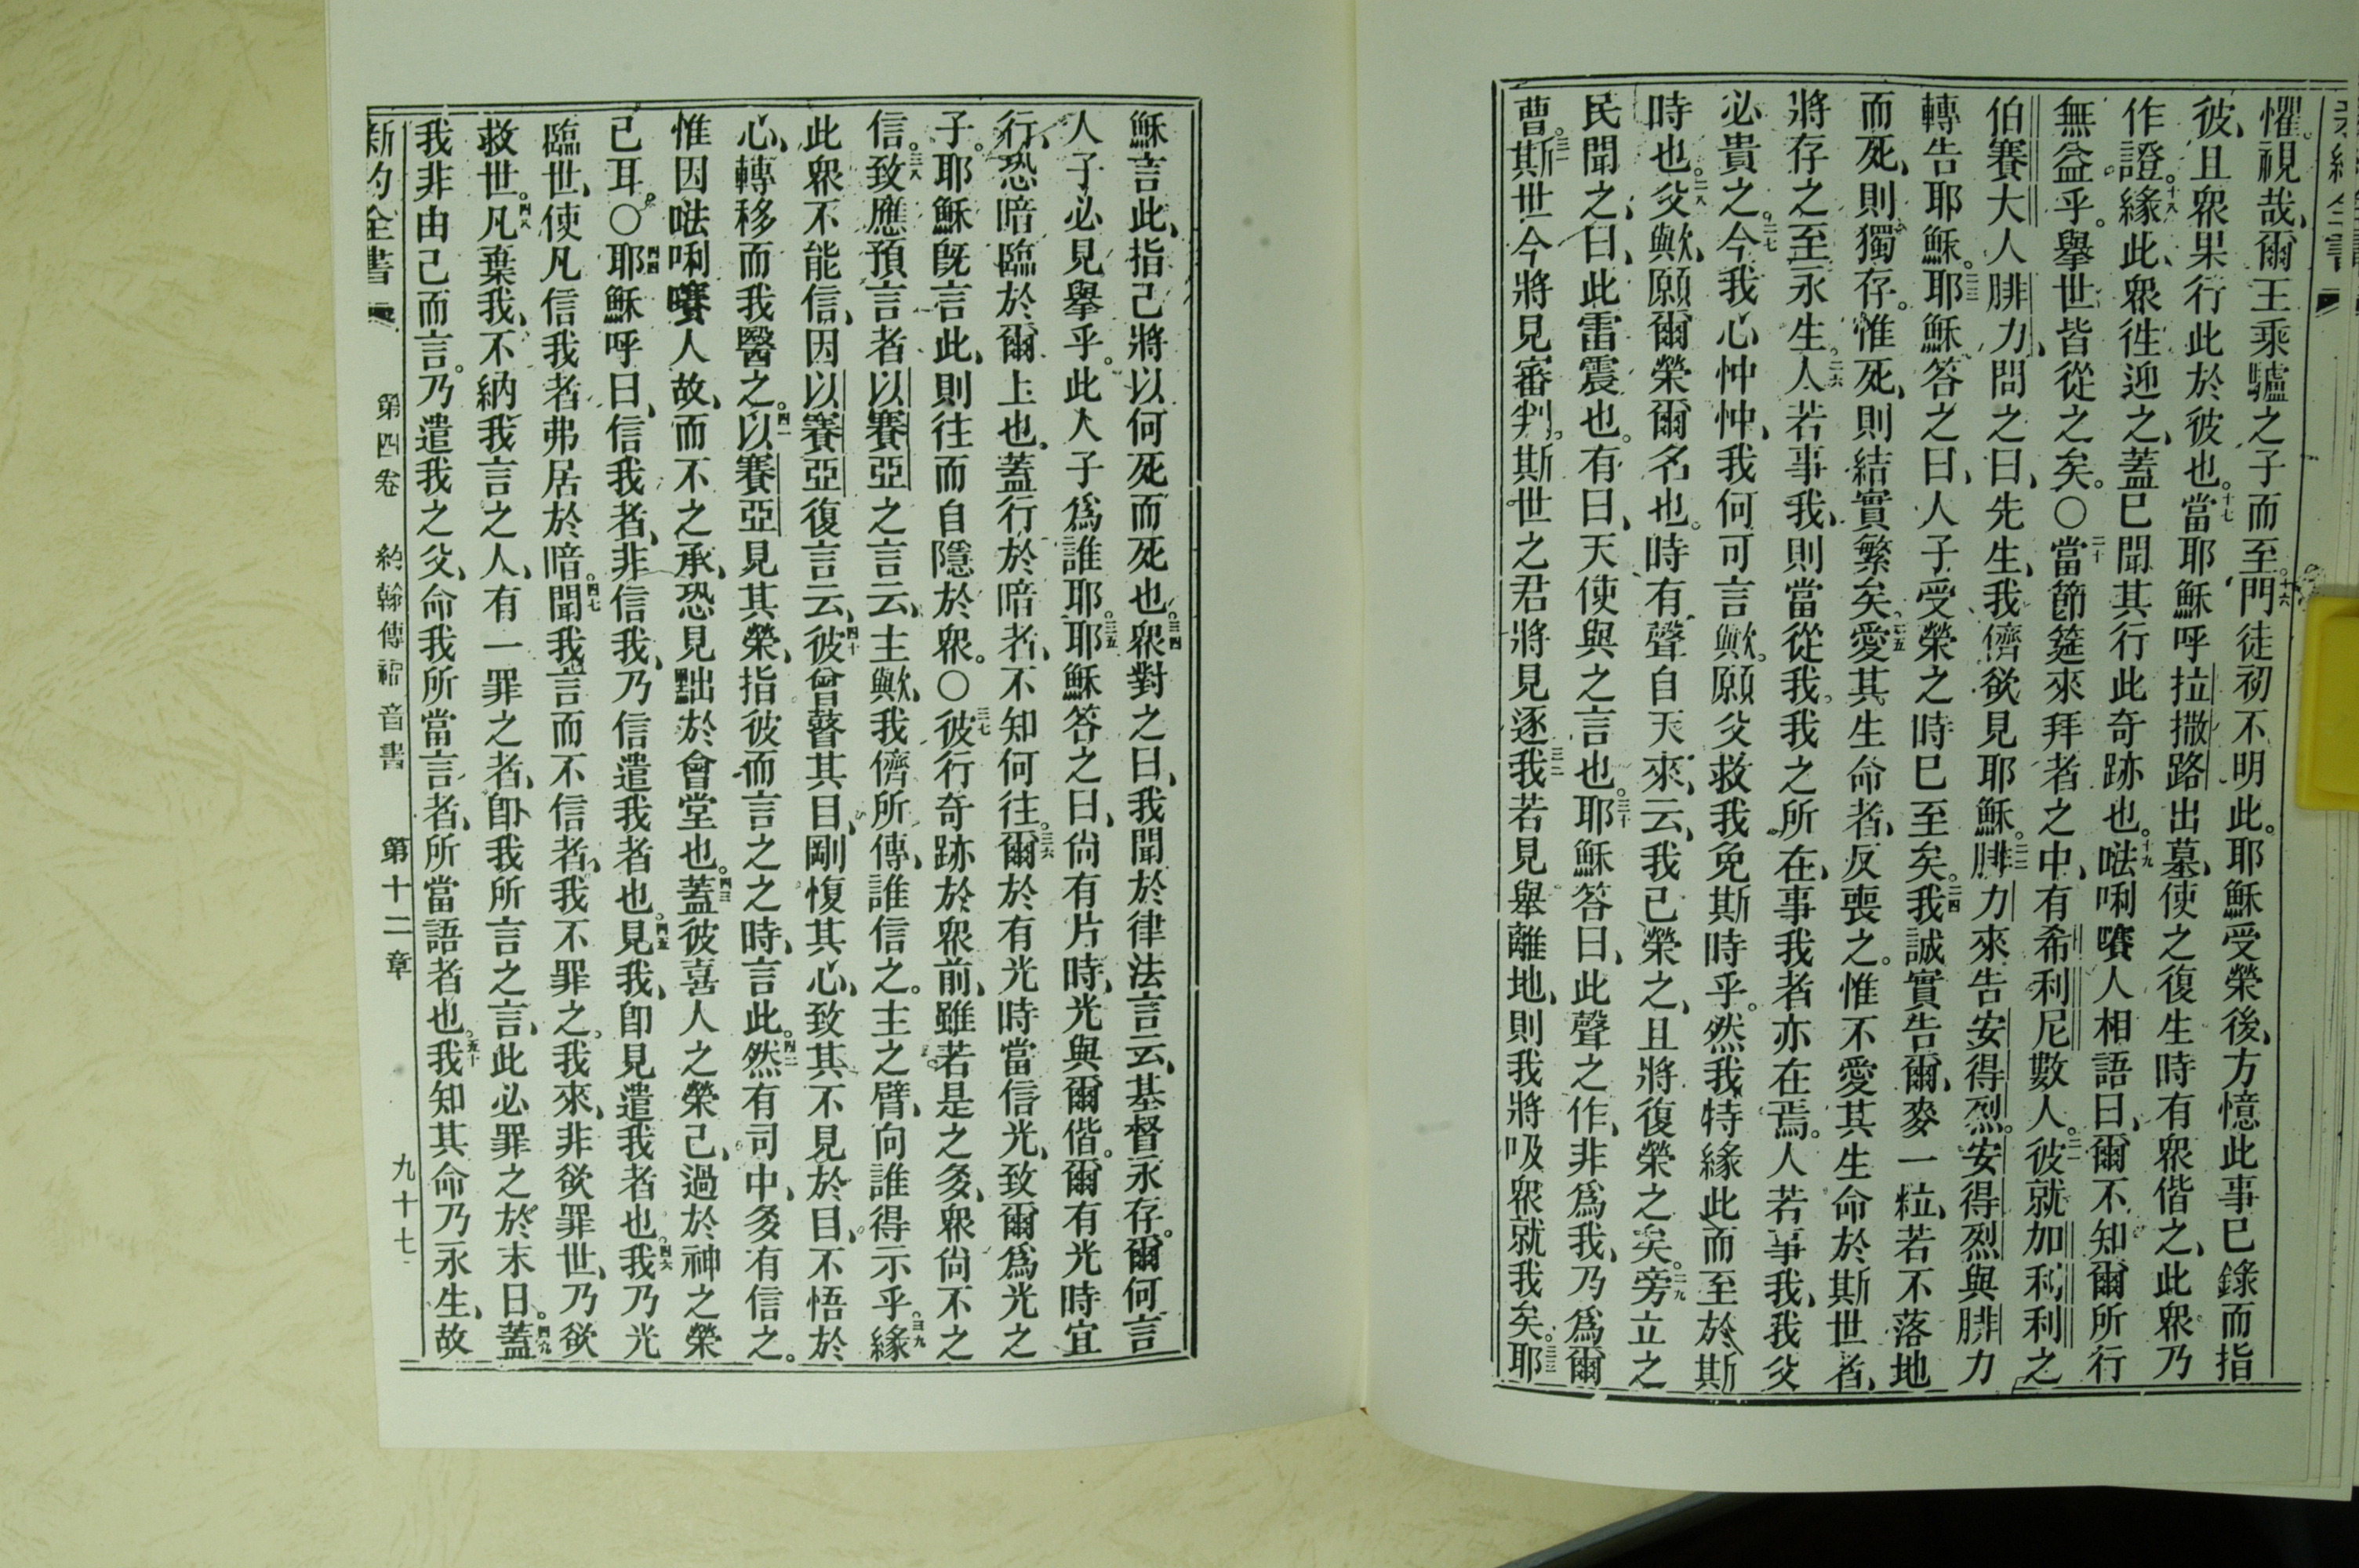 懼。視哉、爾王乘驢之子而至。十六門徒初不明此。耶穌受榮後、方憶此事已錄而指
彼、且衆果行此於彼也。十七當耶穌呼拉撒路出墓、使之復生時、有衆偕之、此衆乃
作證。十八緣此、衆徃迎之、蓋已聞其行此奇跡也。十九𠵽唎㘔人相語曰、爾不知爾所行
無益乎。擧世皆從之矣。〇二十當節筵來拜者之中、有希利尼數人。二一彼就加利利之
伯賽大人腓力、問之曰、先生、我儕欲見耶穌。二二腓力來告安得烈。安得烈與腓力
轉告耶穌。二三耶穌答之曰、人子受榮之時已至矣。二四我誠實告爾、麥一粒、若不落地
而死、則獨存。惟死、則結實繁矣。二五愛其生命者、反喪之。惟不愛其生命於斯世者、
將存之至永生。二六人若事我、則當從我。我之所在、事我者亦在焉。人若事我、我父
必貴之。二七今我心忡忡、我何可言歟。願父救我免斯時乎。然我特緣此而至於斯
時也。二八父歟、願爾榮爾名也。時有聲自天來、云、我已榮之、且將復榮之矣。二九旁立之
民聞之、曰、此雷震也。有曰、天使與之言也。三十耶穌答曰、此聲之作、非爲我、乃爲爾
曹。三一斯世今將見審判。斯世之君將見逐。三二我若見舉離地、則我將吸衆就我矣。三三耶
穌言此、指己將以何死而死也。三四衆對之曰、我聞於律法言云、基督永存。爾何言
人子必見擧乎。此人子爲誰耶。三五耶穌答之曰、尙有片時、光與爾偕。爾有光時宜
行、恐暗臨於爾上也。蓋行於暗者、不知何往。三六爾於有光時當信光、致爾爲光之
子。耶穌旣言此、則往而自隱於衆。〇三七彼行奇跡於衆前、雖若是之多、衆尙不之
信。三八致應預言者以賽亞之言云、主歟、我儕所傳、誰信之。主之臂、向誰得示乎。三九緣
此衆不能信、因以賽亞復言云、四十彼曾瞽其目、剛愎其心、致其不見於目、不悟於
心、轉移而我醫之。四一以賽亞見其榮、指彼而言之之時、言此。四二然有司中、多有信之。
惟因𠵽唎㘔人故、而不之承、恐見黜於會堂也。四三蓋彼喜人之榮己、過於神之榮
己耳。〇四四耶穌呼曰、信我者、非信我、乃信遣我者也。四五見我、卽見遣我者也。四六我乃光
臨世、使凡信我者弗居於暗。四七聞我言而不信者、我不罪之。我來、非欲罪世、乃欲
救世。四八凡棄我、不納我言之人、有一罪之者、卽我所言之言、此必罪之於末日。四九蓋
我非由己而言。乃遣我之父、命我所當言者、所當語者也。五十我知其命乃永生、故
新約全書 第四卷 約翰傳福音書 第十二章 九十七